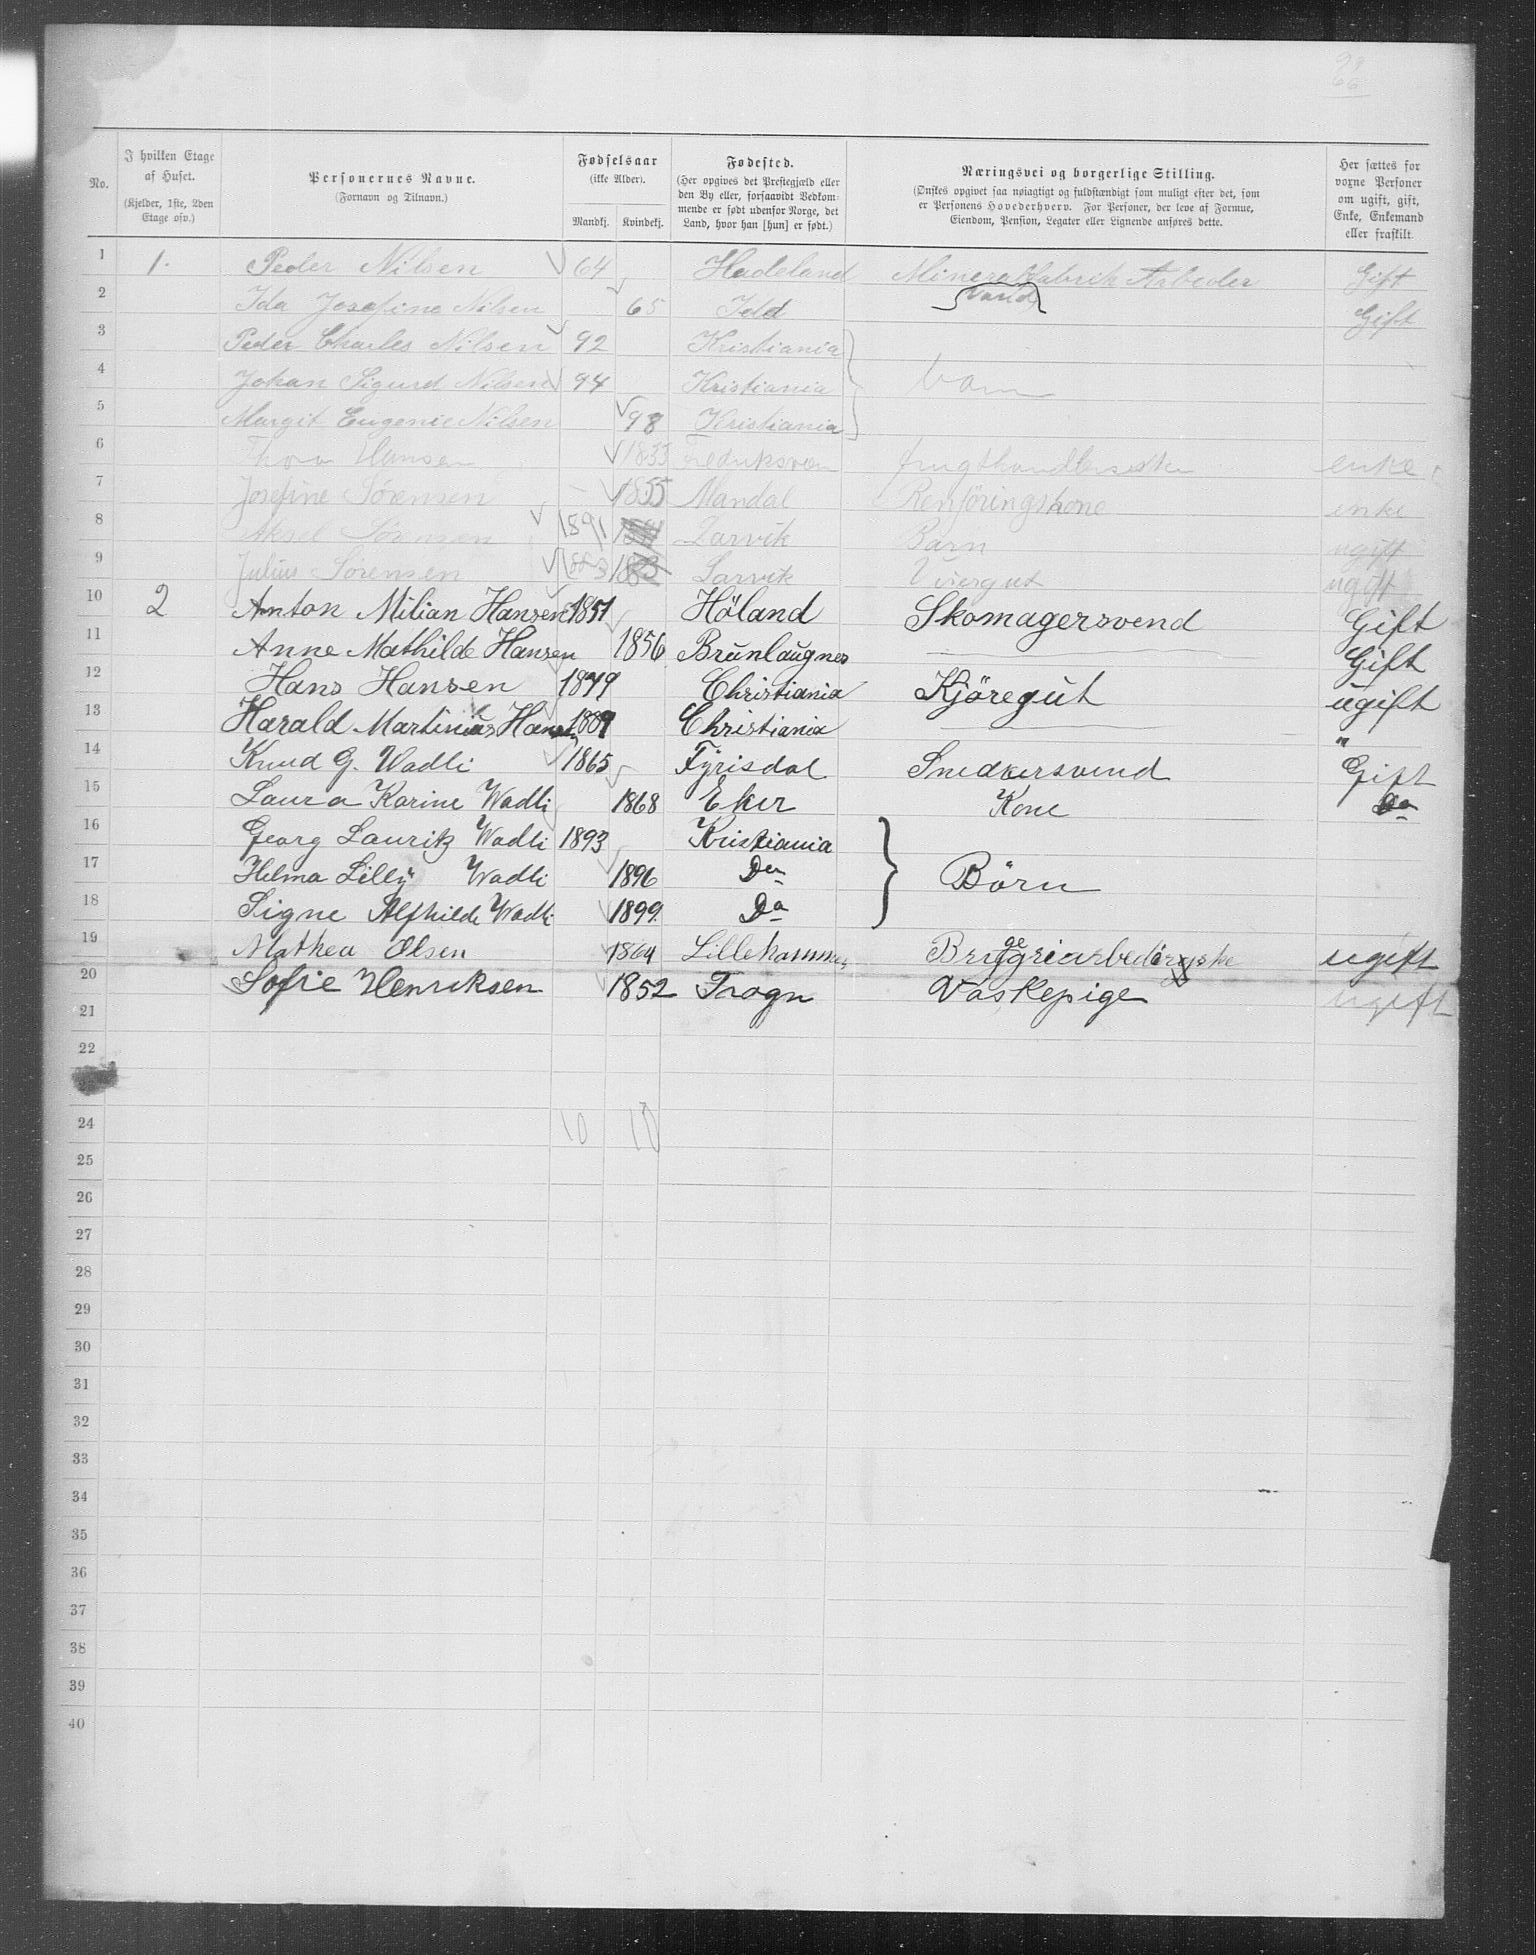 26
No. | I hvilken Etage af Huset. (Kjelder, 1ste, 2den Etage osv.) | Personernes Navne. (Fornavn og Tilnavn.) | Fødselsaar (ikke Alder). Mandkj. | Kvindekj. | Fødested. (Her opgives det Prestegjæld eller den By eller, forsaavidt Vedkommende er født udenfor Norge, det Land, hvor han [hun] er født.) | Næringsvei og borgerlige Stilling. (Ønskes opgivet saa nøiagtigt og fuldstændigt som muligt efter det, som er Personens Hovederhverv. For Personer, der leve af Formue, Eiendom, Pension, Legater eller Lignende anføres dette. | Her sættes for voxne Personer om ugift, gift, Enke, Enkemand eller fraskilt.
1 1. Peder Nilsen 64 Hadeland Mineralvandfabrik Arbeder Gift
2 Ida Josefine Nilsen 65 Idd Gift
3 Peder Charles Nilsen 92 Kristiania
4 Johan Sigurd Nilsen 94 Kristiania } barn
5 Margit Eugenie Nilsen 98 Kristiania
6 Thora Hansen 1833 Fredriksværn frugthandlerske enke
7 Josefine Sørensen 1855 Mandal Renføringskone enke
8 Aksel Sørensen 1891 Larvik Barn ugift
9 Julius Sørensen 1883 Larvik Visergut ugift
10 2 Anton Milian Hansen 1851 Höland Skomagersvend Gift
11 Anne Mathilde Hansen 1856 Brunlaugnes Gift
12 Hans Hansen 1879 Christiania Kjöregut ugift
13 Harald Martinius Hansen 1889 Christiania "
14 Knud G. Wadli 1865 Fyrisdal Snedkersvend Gift
15 Laura Karine Wadli 1868 Eker Kone Do
16 Georg Lauritz Wadli 1893 Kristiania
17 Helma Lilly Wadli 1896 Do } Börn
18 Signe Alfhilde Wadli 1899. Do
19 Mathea Olsen 1864 Lillehammer Bryggeriarbederske ugift
20 Sofie Henriksen 1852 Trogn Vaskepige ugift
21
22
24 10 10
25
26
27
28
29
30
31
32
33
34
35
36
37
38
39
40